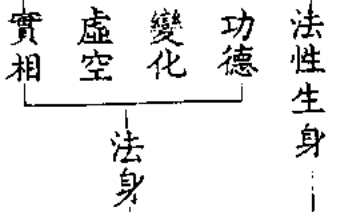 法性生身
功德
變化
虛空
實相
法身